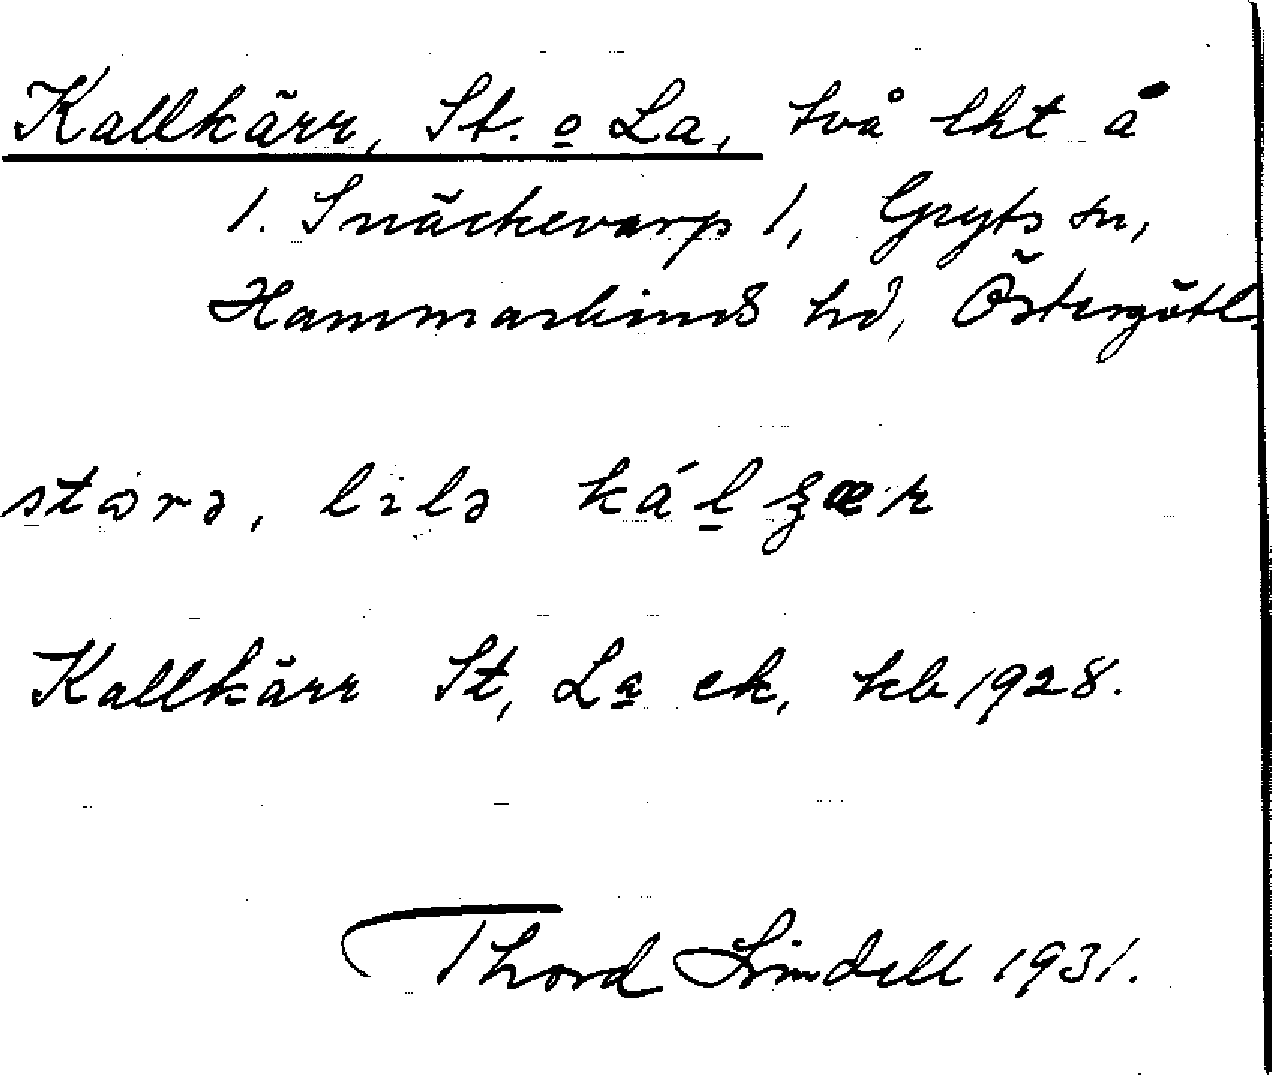 Kallkärr, St. o La, två lht å
1. Snäckevarp 1, Gryts sn,
Hammarkinds hd, Östergötl.
stɷrə, lilə kál̠ʓær
Kallkärr St, La ek, kb 1928.
Thord Lindell 1931.